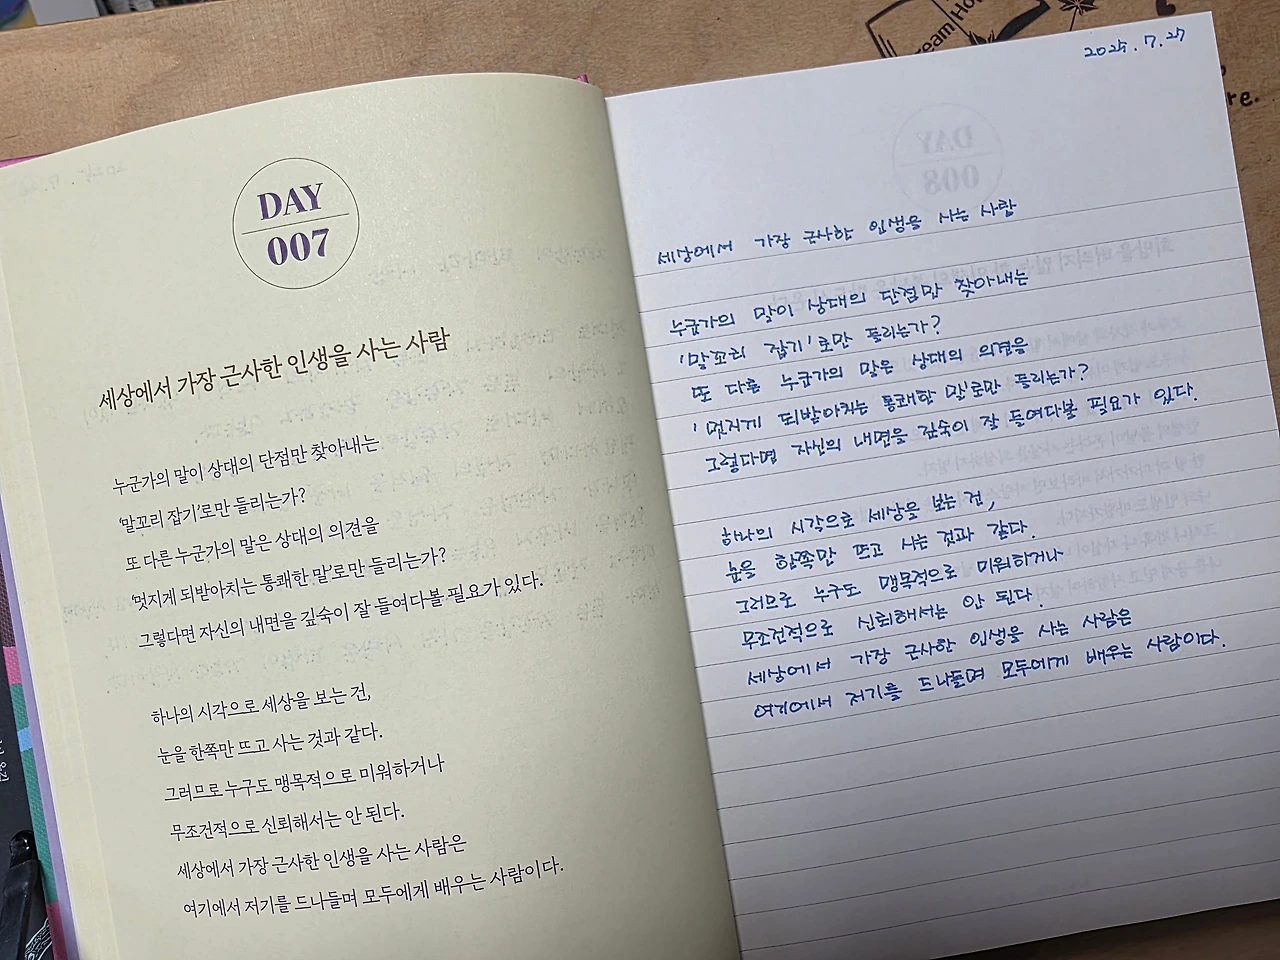 DAY
007
세상에서 가장 근사한 인생을 사는 사람
누군가의 말이 상대의 단점만 찾아내는
‘말꼬리 잡기’로만 들리는가?
또 다른 누군가의 말은 상대의 의견을
‘멋지게 되받아치는 통쾌한 말’로만 들리는가?
그렇다면 자신의 내면을 깊숙이 잘 들여다볼 필요가 있다.
하나의 시각으로 세상을 보는 건,
눈을 한쪽만 뜨고 사는 것과 같다.
그러므로 누구도 맹목적으로 미워하거나
무조건적으로 신뢰해서는 안 된다.
세상에서 가장 근사한 인생을 사는 사람은
여기에서 저기를 드나들며 모두에게 배우는 사람이다.
2025.7.27
세상에서 가장 근사한 인생을 사는 사람
누군가의 말이 상대의 단점만 찾아내는
'말꼬리 잡기'로만 들리는가?
또 다른 누군가의 말은 상대의 의견을
'멋지게 되받아치는 통쾌한 말'로만 들리는가?
그렇다면 자신의 내면을 깊숙이 잘 들여다볼 필요가 있다.
하나의 시각으로 세상을 보는 건,
눈을 한쪽만 뜨고 사는 것과 같다.
그러므로 누구도 맹목적으로 미워하거나
무조건적으로 신뢰해서는 안 된다.
세상에서 가장 근사한 인생을 사는 사람은
여기에서 저기를 드나들며 모두에게 배우는 사람이다.